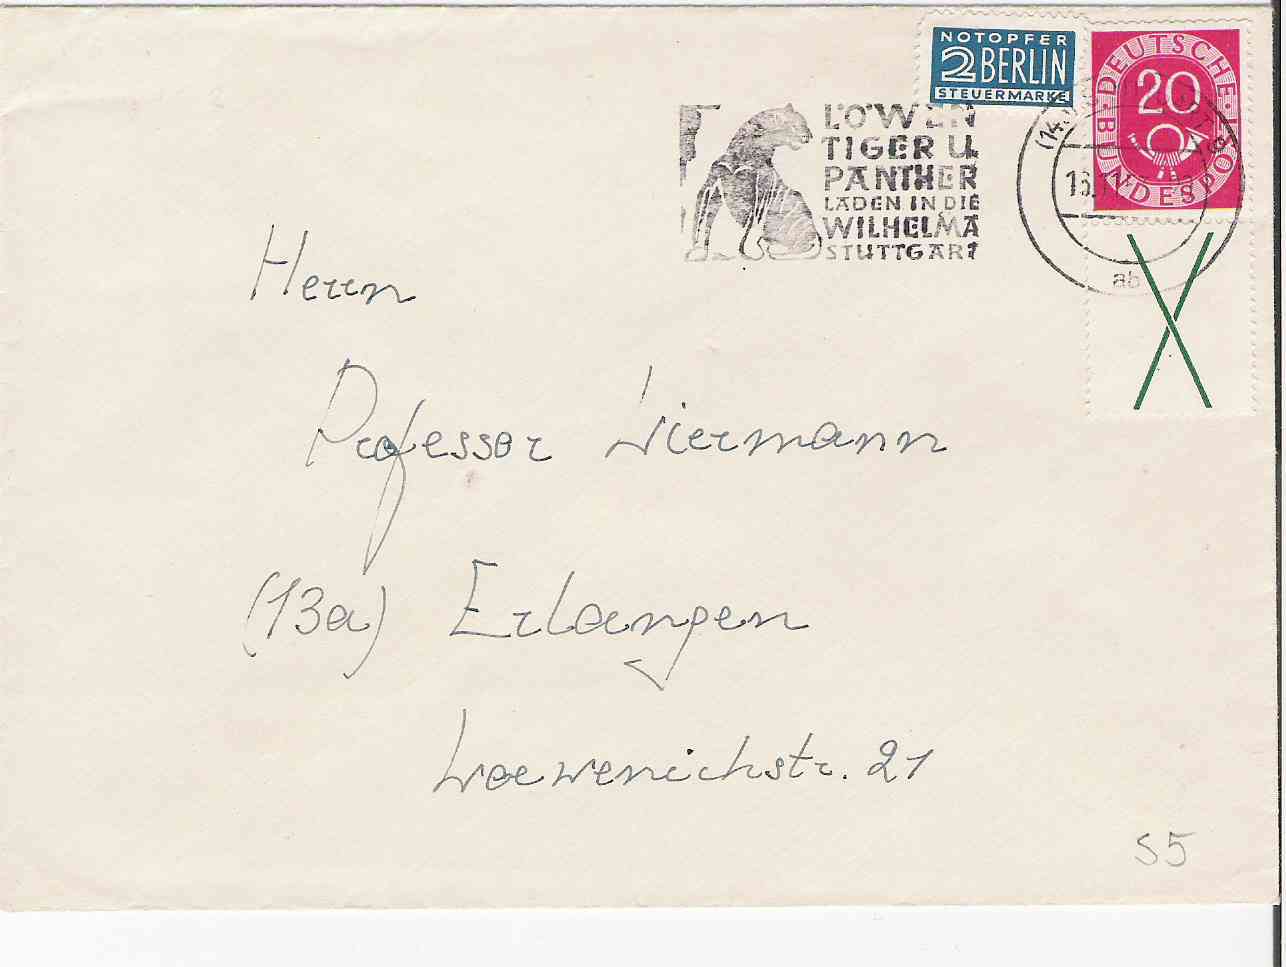 NOTOPFER
2 BERLIN
STEUERMARKE
DEUTSCHE
BUNDESPOST
20
LÖWEN
TIGER U.
PANTHER
LADEN IN DIE
WILHELMA
STUTTGART
ab
Herrn
Professor Wiermann
(13a) Erlangen
Loewenichstr. 21
S5